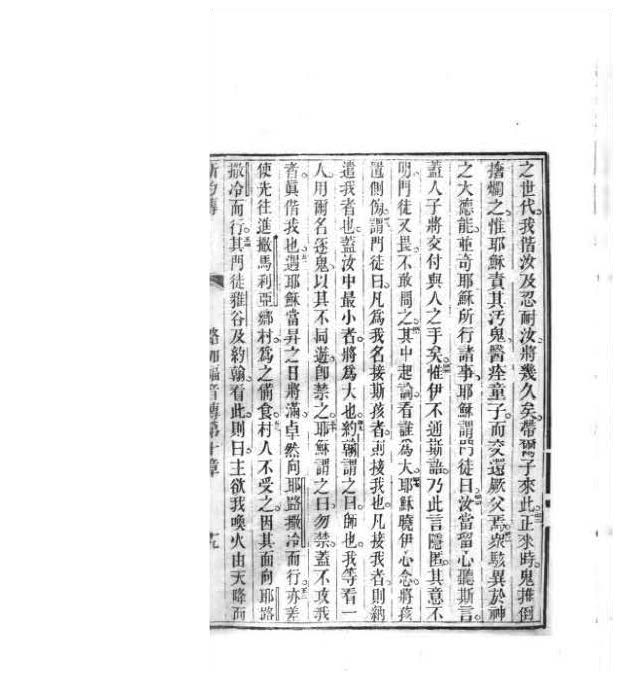 之世代我偕汝及忍耐汝將幾久矣帶爾子來此正來時鬼推倒
搶爛之惟耶穌責其汚鬼醫痊童子而交還厥父焉衆駭異於神
之大德能並奇耶穌所行諸事耶穌謂門徒曰汝當留心聽斯言
蓋人子將交付與人之手矣惟伊不通斯語乃此言隱匿其意不
明門徒又畏不敢問之其中起論看誰為大耶穌曉伊心念將孩
置側傍謂門徒曰凡為我名接斯孩者則接我也凡接我者則納
遣我者也蓋汝中最小者將為大也約翰謂之曰師也我等看一
人用爾名逐鬼以其不同遊即禁之耶穌謂之曰勿禁蓋不攻我
者眞偕我也遇耶穌當昇之日將滿卓然向耶路撒冷而行亦差
使先往進撒馬利亞鄉村為之備食村人不受之因其面向耶路
撒冷而行其門徒雅谷及約翰看此則曰主欲我喚火由天降而
路加福音傳第十章 十九